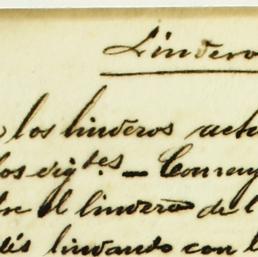 Lindero
los linderos actu
los vigtes — Comenz
re el lindero de l
dís lindando con l